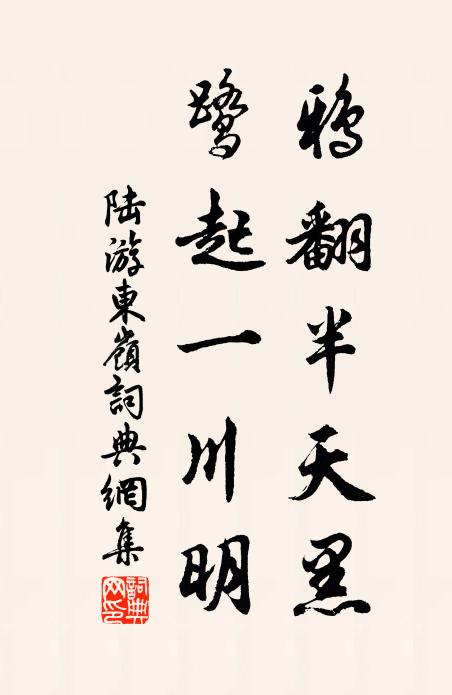 鴉翻半天黑
鹭起一川明
陆游東嶺詞典網集
詞典网印